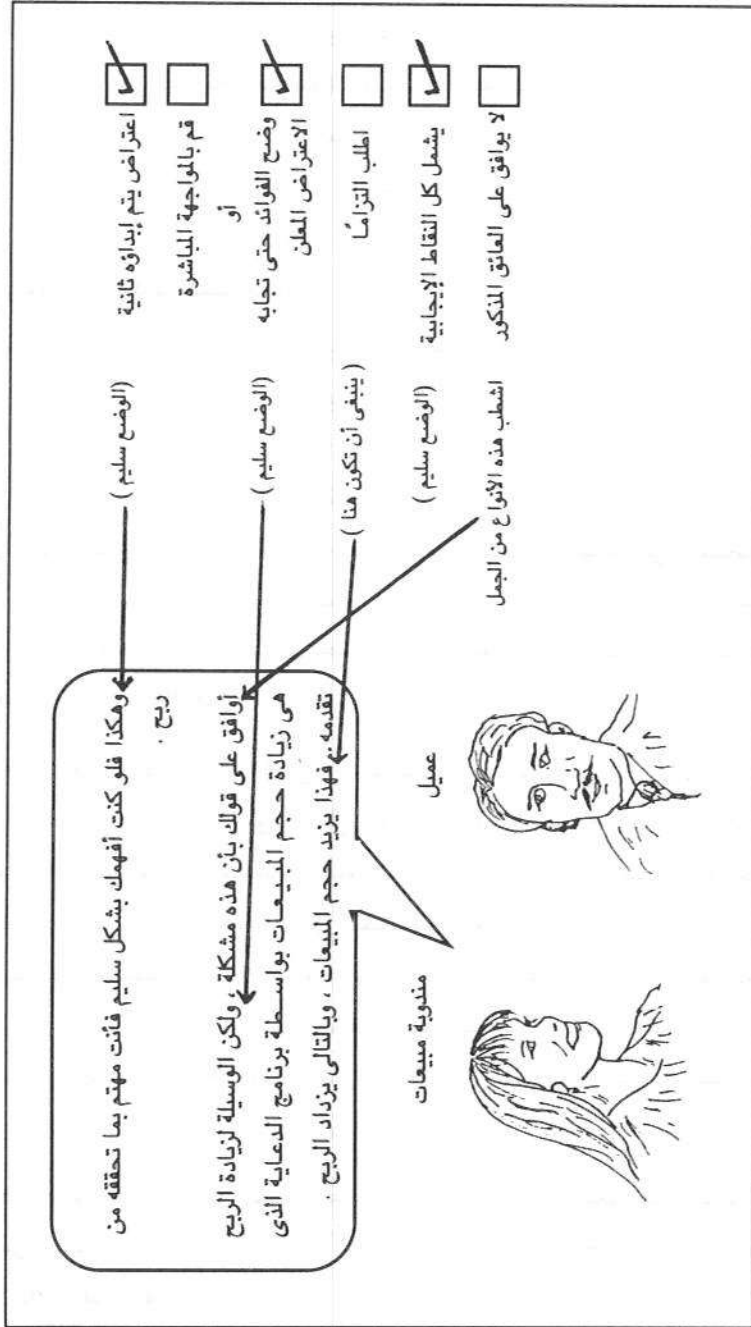 اعتراض يتم إبداؤه ثانية
قم بالمواجهة المباشرة
أو
وضح الفوائد حتى تجابه
الاعتراض المعلن
اطلب التزامًا
يشمل كل النقاط الإيجابية
لا يوافق على العائق المذكور
(الوضع سليم)
(الوضع سليم)
(ينبغى أن تكون هنا)
(الوضع سليم)
اشطب هذه الأنواع من الجمل
وهكذا فلو كنت أفهمك بشكل سليم فأنت مهتم بما تحققه من
ربح .
أوافق على قولك بأن هذه مشكلة ، ولكن الوسيلة لزيادة الربح
هى زيادة حجم المبيعات بواسطة برنامج الدعاية الذى
نقدمه ، فهذا يزيد حجم المبيعات ، وبالتالى يزداد الربح .
عميل
مندوبة مبيعات